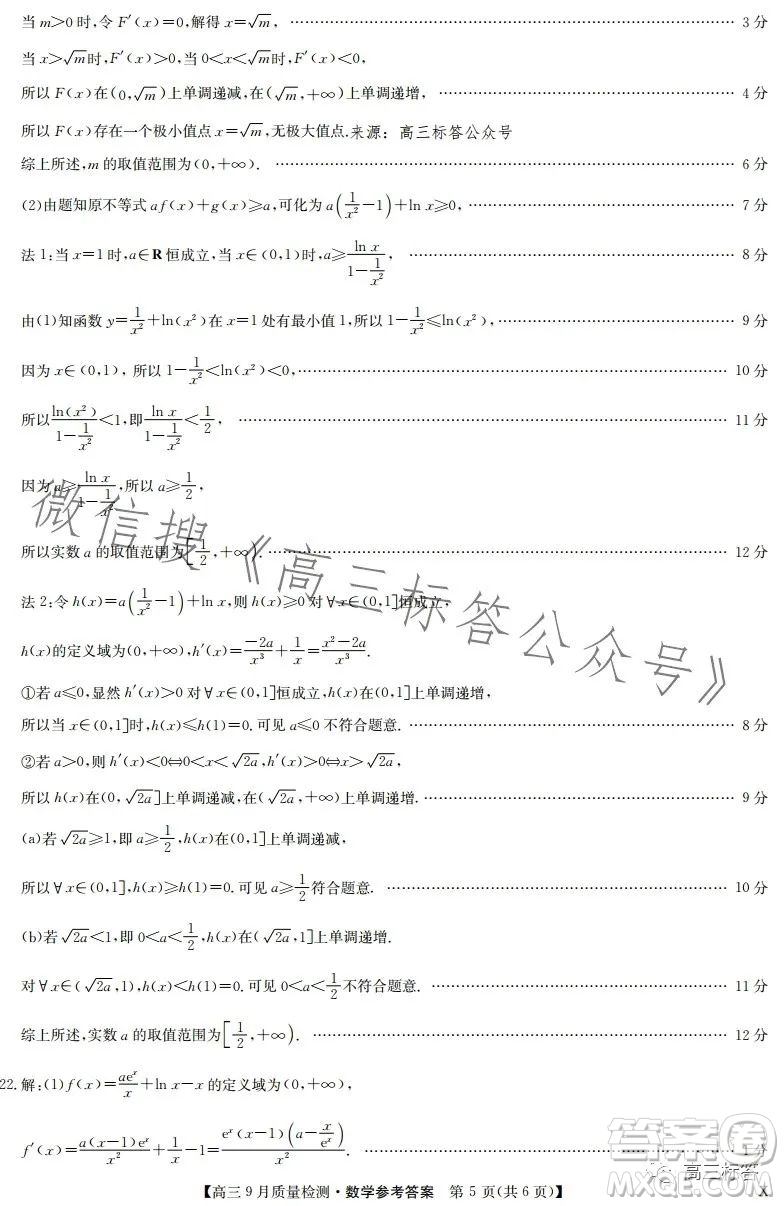 当 m>0 时,令 F′(x)=0,解得 x=√m, …… 3 分
当 x>√m时,F′(x)>0,当 0<x<√m时,F′(x)<0,
所以 F(x)在(0,√m)上单调递减,在(√m,+∞)上单调递增, …… 4 分
所以 F(x)存在一个极小值点 x=√m,无极大值点.来源：高三标答公众号
综上所述,m 的取值范围为(0,+∞). …… 6 分
(2)由题知原不等式 af(x)+g(x)≥a,可化为 a(1/x²−1)+ln x≥0, …… 7 分
法 1:当 x=1 时,a∈R 恒成立,当 x∈(0,1)时,a≥ln x/(1−1/x²), …… 8 分
由(1)知函数 y=1/x²+ln(x²)在 x=1 处有最小值 1,所以 1−1/x²≤ln(x²), …… 9 分
因为 x∈(0,1), 所以 1−1/x²<ln(x²)<0, …… 10 分
所以 ln(x²)/(1−1/x²)<1,即 ln x/(1−1/x²)<1/2, …… 11 分
因为 a≥ln x/(1−1/x²),所以 a≥1/2,
所以实数 a 的取值范围为[1/2,+∞). …… 12 分
法 2:令 h(x)=a(1/x²−1)+ln x,则 h(x)≥0 对∀x∈(0,1]恒成立,
h(x)的定义域为(0,+∞),h′(x)=−2a/x³+1/x=(x²−2a)/x³.
①若 a≤0,显然 h′(x)>0 对∀x∈(0,1]恒成立,h(x)在(0,1]上单调递增,
所以当 x∈(0,1]时,h(x)≤h(1)=0.可见 a≤0 不符合题意. …… 8 分
②若 a>0,则 h′(x)<0⇔0<x<√2a,h′(x)>0⇔x>√2a,
所以 h(x)在(0,√2a]上单调递减,在(√2a,+∞)上单调递增. …… 9 分
(a)若√2a≥1,即 a≥1/2,h(x)在(0,1]上单调递减,
所以∀x∈(0,1],h(x)≥h(1)=0.可见 a≥1/2符合题意. …… 10 分
(b)若√2a<1,即 0<a<1/2,h(x)在(√2a,1]上单调递增.
对∀x∈(√2a,1),h(x)<h(1)=0.可见 0<a<1/2不符合题意. …… 11 分
综上所述,实数 a 的取值范围为[1/2,+∞). …… 12 分
22.解:(1)f(x)=aeˣ/x+ln x−x 的定义域为(0,+∞),
f′(x)=a(x−1)eˣ/x²+1/x−1=eˣ(x−1)(a−x/eˣ)/x². …… 1 分
【高三 9 月质量检测·数学参考答案 第 5 页(共 6 页)】 X
微信搜《高三标答公众号》
高三标答
答案圈
MXQE.COM